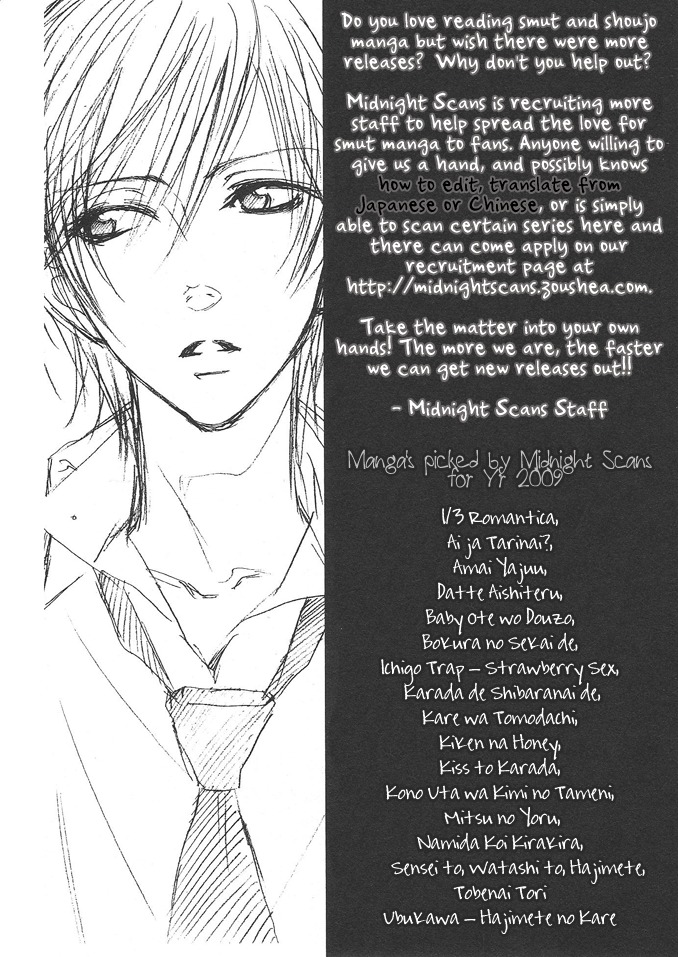 Do you love reading smut and shoujo
manga but wish there were more
releases? Why don't you help out?
Midnight Scans is recruiting more
staff to help spread the love for
smut manga to fans. Anyone willing to
give us a hand, and possibly knows
how to edit, translate from
Japanese or Chinese, or is simply
able to scan certain series here and
there can come apply on our
recruitment page at
http://midnightscans.zoushea.com.
Take the matter into your own
hands! The more we are, the faster
we can get new releases out!!
- Midnight Scans Staff
Manga's picked by Midnight Scans
for Yr 2009
1/3 Romantica,
Ai ja Tarinai?,
Amai Yajuu,
Datte Aishiteru,
Baby Ote wo Douzo,
Bokura no Sekai de,
Ichigo Trap - Strawberry Sex,
Karada de Shibaranai de,
Kare wa Tomodachi,
Kiken na Honey,
Kiss to Karada,
Kono Uta wa Kimi no Tameni,
Mitsu no Yoru,
Namida Koi Kirakira,
Sensei to, Watashi to, Hajimete,
Tobenai Tori
Ubukawa - Hajimete no Kare